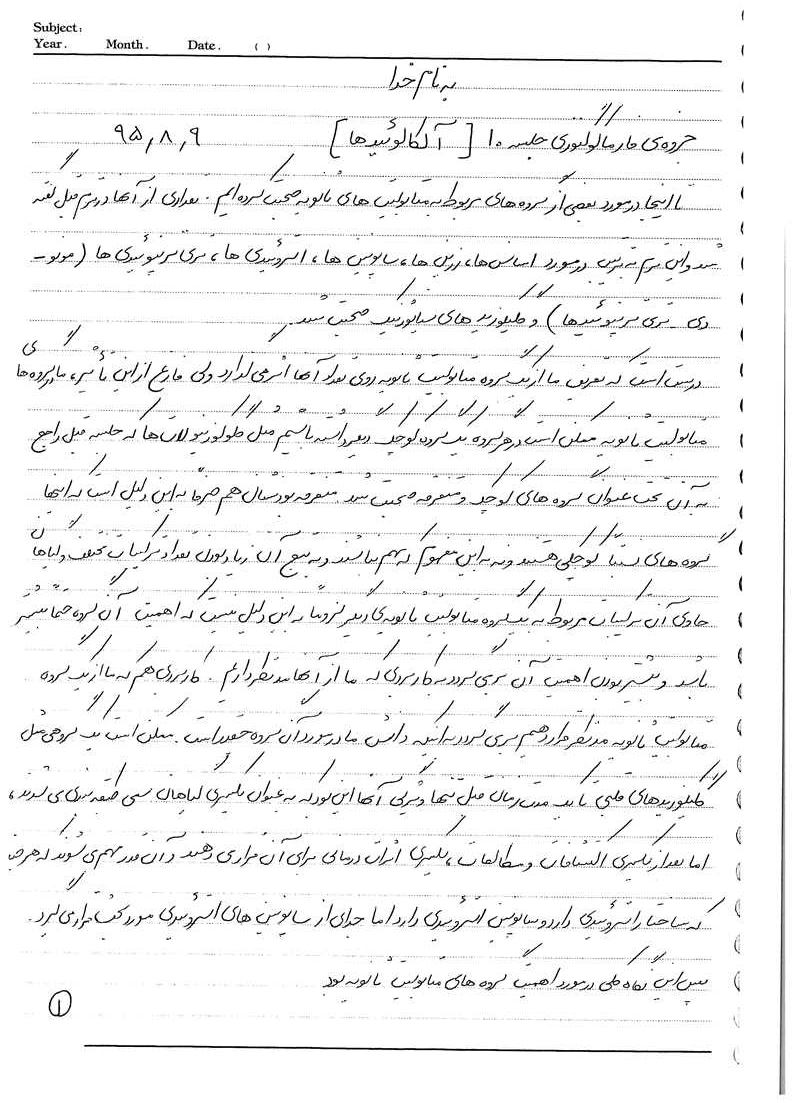 Subject:
Year. Month. Date. ( )
به نام خدا
جزوه‌ی فارماکولوژی جلسه ۱۰ [آلکالوئیدها] ۹۵,۸,۹
تا اینجا در مورد بعضی از گروه های مربوط به متابولیت های ثانویه صحبت کرده ایم . تعدادی از آنها در ترم قبل گفته
شد و این ترم به ترتیب در مورد اسانس ها، رزین ها، ساپونین ها، استروئیدی ها، تری ترپنوئیدی ها (مونو -
دی - تری ترپنوئیدها) و گلیکوزید های سیانوژنیک صحبت شد.
درست است که تعریف ما از یک گروه متابولیت ثانویه روی تعداد آنها اثر می گذارد ولی فارغ از این تأثیر، ما در گروه های
متابولیت ثانویه ممکن است در هر گروه یک گروه کوچک دیگر داشته باشیم مثل گلوکوزینولات ها که جلسه قبل راجع
به آن تحت عنوان گروه های کوچک و متفرقه صحبت شد. متفرقه بودنشان هم صرفا به این دلیل است که اینها
گروه های نسبتا کوچکی هستند و نه به این مفهوم که مهم نباشند و به تبع آن زیاد بودن تعداد ترکیبات مختلف و گیاهان
حاوی آن ترکیبات مربوط به یک گروه متابولیت ثانویه‌ی دیگر لزوما به این دلیل نیست که اهمیت آن گروه حتما بیشتر
باشد و بیشتر بودن اهمیت آن برمی گردد به کاربردی که ما از آنها مد نظر داریم . کاربردی هم که ما از یک گروه
متابولیت ثانویه مد نظر قرار دهیم برمی گردد به اینکه دانش ما در مورد آن گروه چقدر است. ممکن است یک گروهی مثل
گلیکوزیدهای قلبی تا یک مدت زمان قبل تنها ویژگی آنها این بود که به عنوان یکسری گیاهان سمی طبقه بندی می شدند،
اما بعد از یکسری اکتشافات و مطالعات، یکسری اثرات درمانی برای آن قرار می دهند و آن قدر مهم می شوند که هر چند
که ساختار استروئیدی دارد و ساپونین استروئیدی دارد اما جدای از ساپونین های استروئیدی مورد بحث قرار می گیرد.
پس این نگاه کلی در مورد اهمیت گروه های متابولیت ثانویه بود
۱